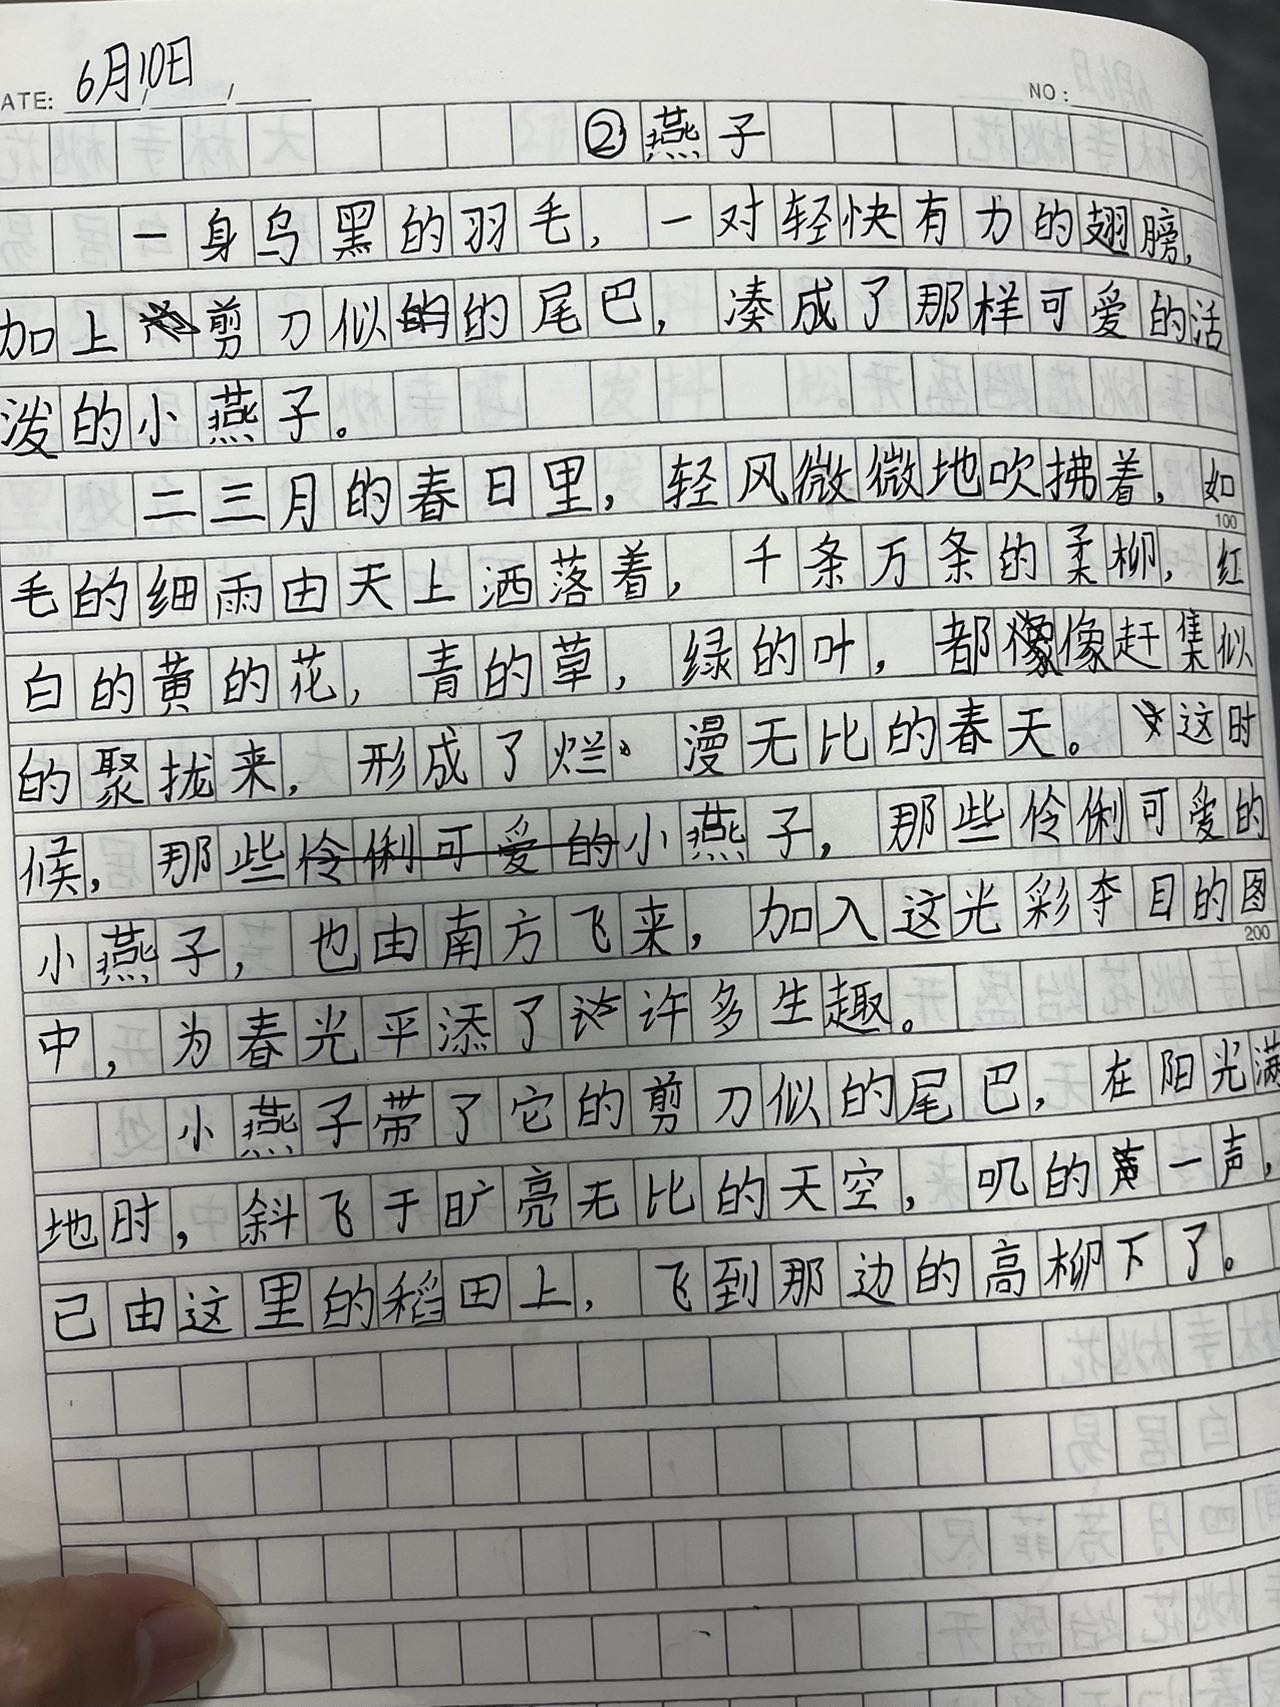 DATE: 6月10日 / / NO:
②燕子
一身乌黑的羽毛，一对轻快有力的翅膀，
加上剪刀似的的尾巴，凑成了那样可爱的活
泼的小燕子。
二三月的春日里，轻风微微地吹拂着，如
100
毛的细雨由天上洒落着，千条万条的柔柳，红
白的黄的花，青的草，绿的叶，都像像赶集似
的聚拢来，形成了烂漫无比的春天。这时
候，那些伶俐可爱的小燕子，那些伶俐可爱的
小燕子，也由南方飞来，加入这光彩夺目的图
200
中，为春光平添了许多生趣。
小燕子带了它的剪刀似的尾巴，在阳光满
地时，斜飞于旷亮无比的天空，叽的一声，
已由这里的稻田上，飞到那边的高柳下了。